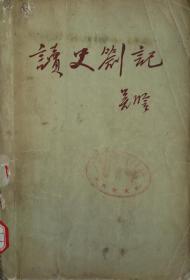 讀史劄記
吴晗